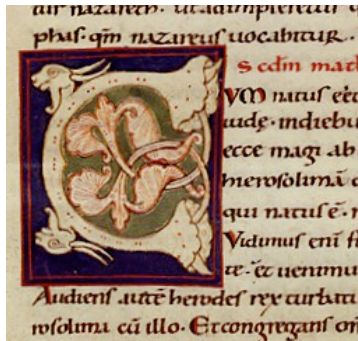 nazareth · ut adimpleretur
phas · qm̄ nazareus uocabitur ·
S cd̄m math
C VM natus eēt
iudę · indiebu
ecce magi ab
hierosolimā
qui natus ē · 
Vidimus enī
te · et uenimu
Audiens autē herodes rex turbatu
rosolima cū illo · Et congregans om